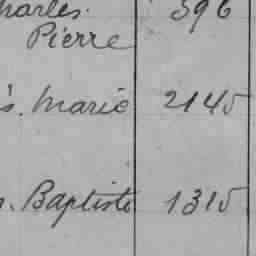 harles. 396
Pierre
s. Marie 2145
n. Baptiste 1315